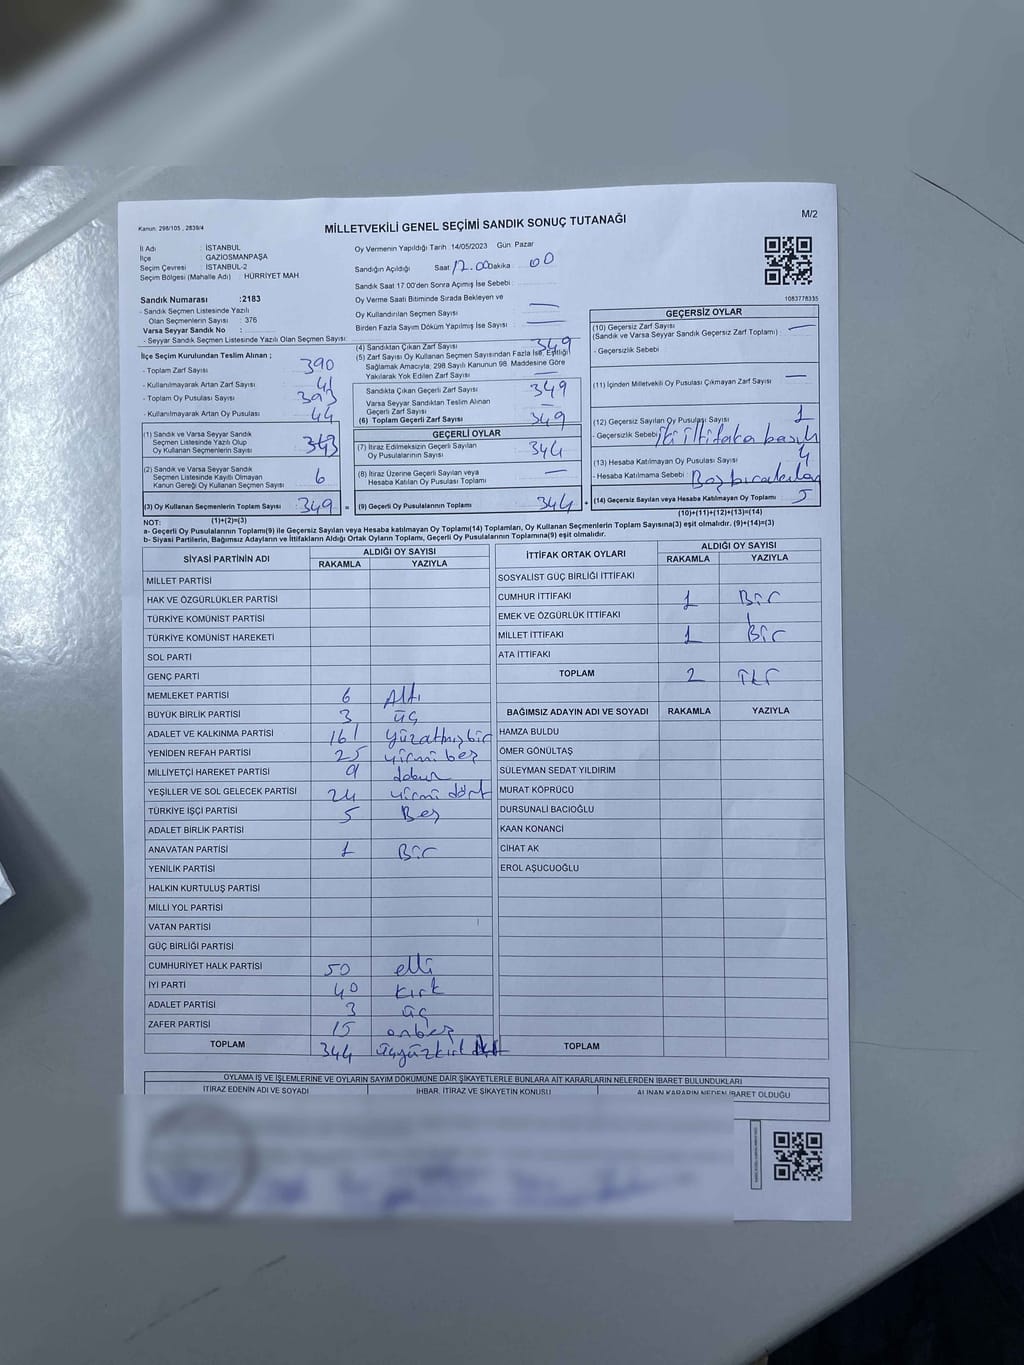 Kanun: 298/105 , 2839/4
MİLLETVEKİLİ GENEL SEÇİMİ SANDIK SONUÇ TUTANAĞI
M/2
İl Adı : İSTANBUL
İlçe : GAZİOSMANPAŞA
Seçim Çevresi : İSTANBUL-2
Seçim Bölgesi (Mahalle Adı) : HÜRRİYET MAH
Sandık Numarası :2183
- Sandık Seçmen Listesinde Yazılı
Olan Seçmenlerin Sayısı : 376
Varsa Seyyar Sandık No :
- Seyyar Sandık Seçmen Listesinde Yazılı Olan Seçmen Sayısı:
Oy Vermenin Yapıldığı Tarih : 14/05/2023 Gün: Pazar
Sandığın Açıldığı Saat 17.00 Dakika: 00
Sandık Saat 17.00'den Sonra Açımış İse Sebebi :
Oy Verme Saati Bitiminde Sırada Bekleyen ve
Oy Kullandırılan Seçmen Sayısı : —
Birden Fazla Sayım Döküm Yapılmış İse Sayısı : —
1083778335
İlçe Seçim Kurulundan Teslim Alınan ;
- Toplam Zarf Sayısı : 390
- Kullanılmayarak Artan Zarf Sayısı : 41
- Toplam Oy Pusulası Sayısı : 393
- Kullanılmayarak Artan Oy Pusulası : 44
(1) Sandık ve Varsa Seyyar Sandık
Seçmen Listesinde Yazılı Olup
Oy Kullanan Seçmenlerin Sayısı : 343
(2) Sandık ve Varsa Seyyar Sandık
Seçmen Listesinde Kayıtlı Olmayan
Kanun Gereği Oy Kullanan Seçmen Sayısı : 6
(3) Oy Kullanan Seçmenlerin Toplam Sayısı : 349
(4) Sandıktan Çıkan Zarf Sayısı : 349
(5) Zarf Sayısı Oy Kullanan Seçmen Sayısından Fazla İse, Eşitliği
Sağlamak Amacıyla; 298 Sayılı Kanunun 98. Maddesine Göre
Yakılarak Yok Edilen Zarf Sayısı : —
Sandıkta Çıkan Geçerli Zarf Sayısı : 349
Varsa Seyyar Sandıktan Teslim Alınan
Geçerli Zarf Sayısı : —
(6) Toplam Geçerli Zarf Sayısı : 349
GEÇERLİ OYLAR
(7) İtiraz Edilmeksizin Geçerli Sayılan
Oy Pusulalarının Sayısı : 344
(8) İtiraz Üzerine Geçerli Sayılan veya
Hesaba Katılan Oy Pusulası Toplamı : —
(9) Geçerli Oy Pusulalarının Toplamı : 344
GEÇERSİZ OYLAR
(10) Geçersiz Zarf Sayısı : —
(Sandık ve Varsa Seyyar Sandık Geçersiz Zarf Toplamı)
- Geçersizlik Sebebi :
(11) İçinden Milletvekili Oy Pusulası Çıkmayan Zarf Sayısı : —
(12) Geçersiz Sayılan Oy Pusulası Sayısı : 1
- Geçersizlik Sebebi : iki ittifaka basılı
(13) Hesaba Katılmayan Oy Pusulası Sayısı : 4
- Hesaba Katılmama Sebebi : Boş bırakılan
(14) Geçersiz Sayılan veya Hesaba Katılmayan Oy Toplamı : 5
NOT: (1)+(2)=(3)
(10)+(11)+(12)+(13)=(14)
a- Geçerli Oy Pusulalarının Toplamı(9) ile Geçersiz Sayılan veya Hesaba katılmayan Oy Toplamı(14) Toplamları, Oy Kullanan Seçmenlerin Toplam Sayısına(3) eşit olmalıdır. (9)+(14)=(3)
b- Siyasi Partilerin, Bağımsız Adayların ve İttifakların Aldığı Ortak Oyların Toplamı, Geçerli Oy Pusulalarının Toplamına(9) eşit olmalıdır.
SİYASİ PARTİNİN ADI ALDIĞI OY SAYISI
RAKAMLA YAZIYLA
MİLLET PARTİSİ
HAK VE ÖZGÜRLÜKLER PARTİSİ
TÜRKİYE KOMÜNİST PARTİSİ
TÜRKİYE KOMÜNİST HAREKETİ
SOL PARTİ
GENÇ PARTİ
MEMLEKET PARTİSİ 6 Altı
BÜYÜK BİRLİK PARTİSİ 3 üç
ADALET VE KALKINMA PARTİSİ 161 yüzatmışbir
YENİDEN REFAH PARTİSİ 25 yirmi beş
MİLLİYETÇİ HAREKET PARTİSİ 9 dokuz
YEŞİLLER VE SOL GELECEK PARTİSİ 24 yirmi dört
TÜRKİYE İŞÇİ PARTİSİ 5 Beş
ADALET BİRLİK PARTİSİ
ANAVATAN PARTİSİ 1 Bir
YENİLİK PARTİSİ
HALKIN KURTULUŞ PARTİSİ
MİLLİ YOL PARTİSİ
VATAN PARTİSİ
GÜÇ BİRLİĞİ PARTİSİ
CUMHURİYET HALK PARTİSİ 50 elli
İYİ PARTİ 40 kırk
ADALET PARTİSİ 3 üç
ZAFER PARTİSİ 15 onbeş
TOPLAM 344 üçyüzkırk
İTTİFAK ORTAK OYLARI ALDIĞI OY SAYISI
RAKAMLA YAZIYLA
SOSYALİST GÜÇ BİRLİĞİ İTTİFAKI
CUMHUR İTTİFAKI 1 Bir
EMEK VE ÖZGÜRLÜK İTTİFAKI
MİLLET İTTİFAKI 1 Bir
ATA İTTİFAKI
TOPLAM 2
BAĞIMSIZ ADAYIN ADI VE SOYADI RAKAMLA YAZIYLA
HAMZA BULDU
ÖMER GÖNÜLTAŞ
SÜLEYMAN SEDAT YILDIRIM
MURAT KÖPRÜCÜ
DURSUNALİ BACIOĞLU
KAAN KONANCİ
CİHAT AK
EROL AŞUCUOĞLU
TOPLAM
OYLAMA İŞ VE İŞLEMLERİNE VE OYLARIN SAYIM DÖKÜMÜNE DAİR ŞİKAYETLERLE BUNLARA AİT KARARLARIN NELERDEN İBARET BULUNDUKLARI
İTİRAZ EDENİN ADI VE SOYADI İHBAR, İTİRAZ VE ŞİKAYETİN KONUSU ALINAN KARARIN NEDEN İBARET OLDUĞU